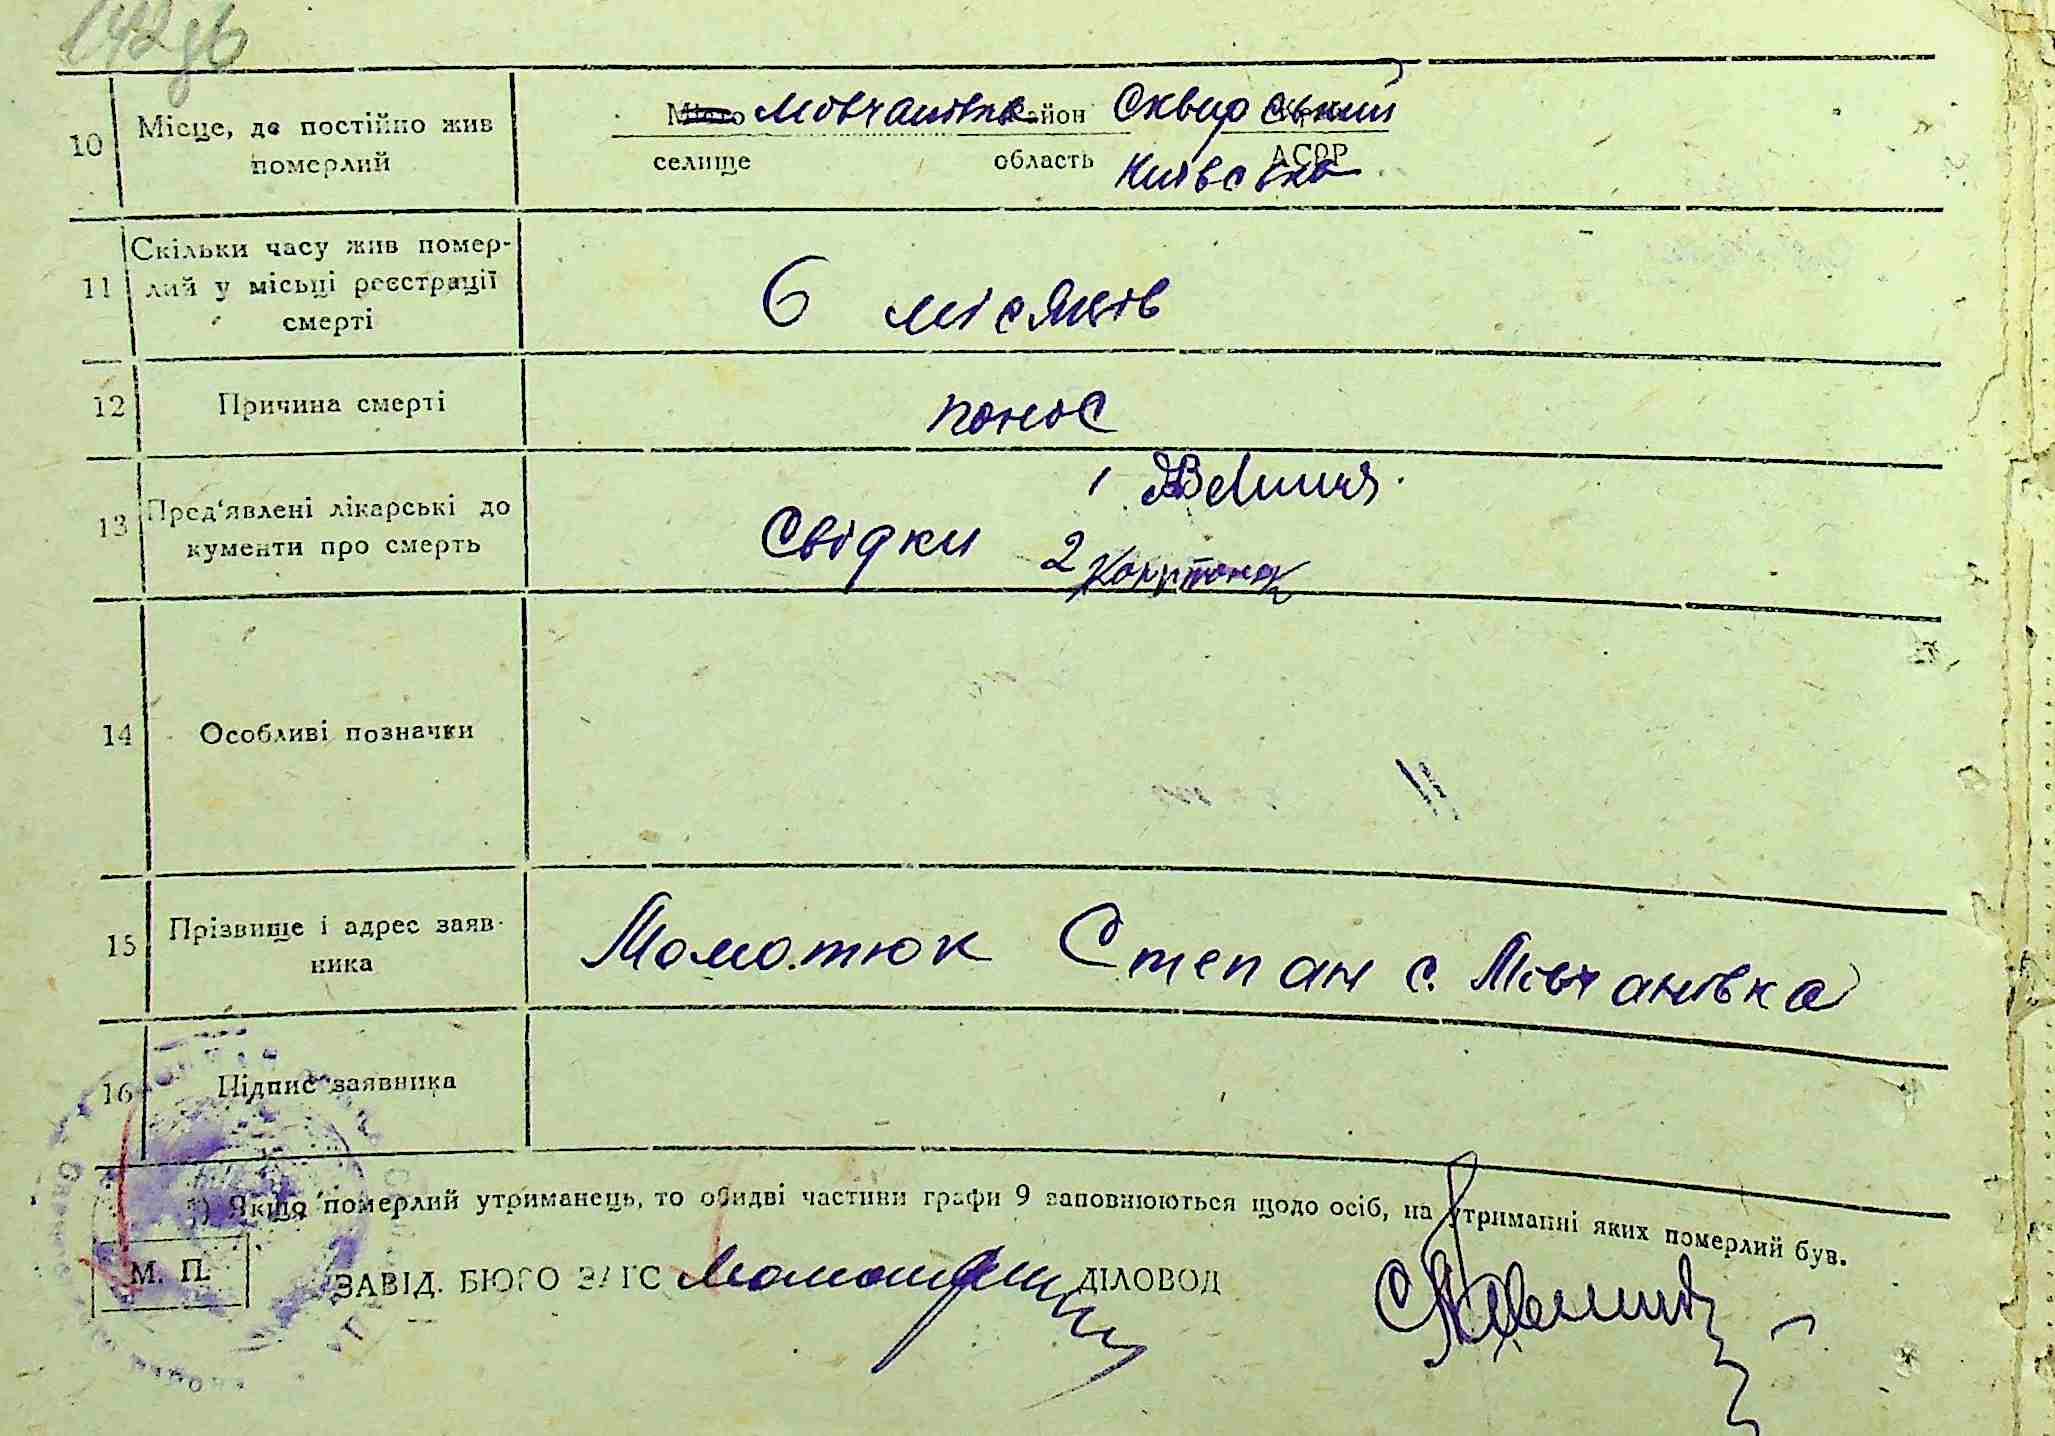 142 зв
10 Місце, де постійно жив Місто Мовчанівка район Сквирський
померлий селище область Київська АСРР
Скільки часу жив помер-
11 лий у місьці реєстрації 6 місяців
смерті
12 Причина смерті понос
13 Пред'явлені лікарські до Свідки 1
кументи про смерть 2
14 Особливі позначки
15 Прізвище і адрес заяв- Момотюк Степан с. Мовчанівка
ника
16 Підпис заявника
1) Якщо померлий утриманець, то обидві частини графи 9 заповнюються щодо осіб, на утриманні яких померлий був.
М. П. ЗАВІД. БЮРО ЗАГС ДІЛОВОД